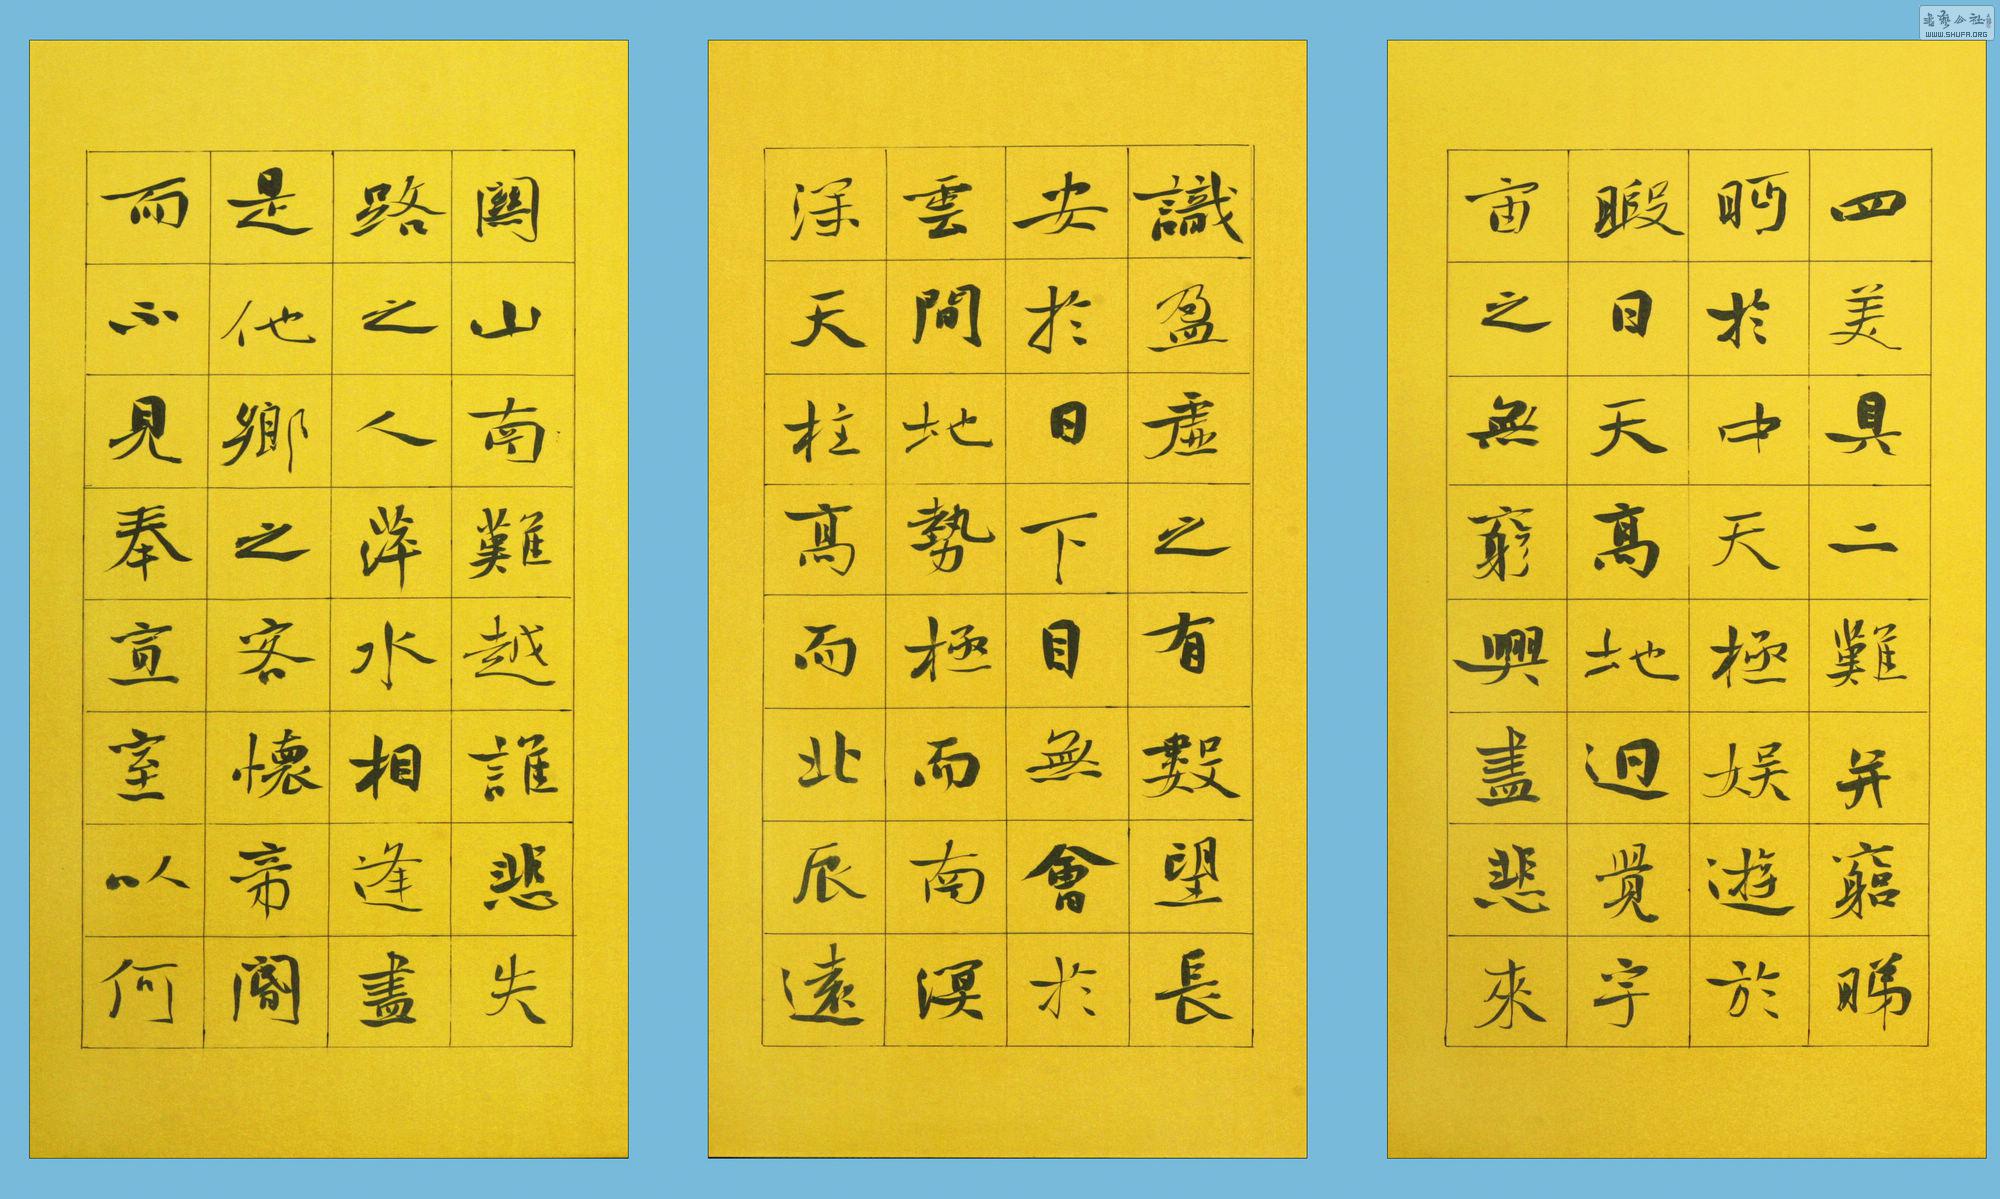 四美具二難并窮睇
眄於中天極娛遊於
暇日天高地迥覺宇
宙之無窮興盡悲來
識盈虛之有數望長
安於日下目無會於
雲間地勢極而南溟
深天柱高而北辰遠
關山南難越誰悲失
路之人萍水相逢盡
是他鄉之客懷帝閽
而不見奉宣室以何
書藝公社
WWW.SHUFA.ORG